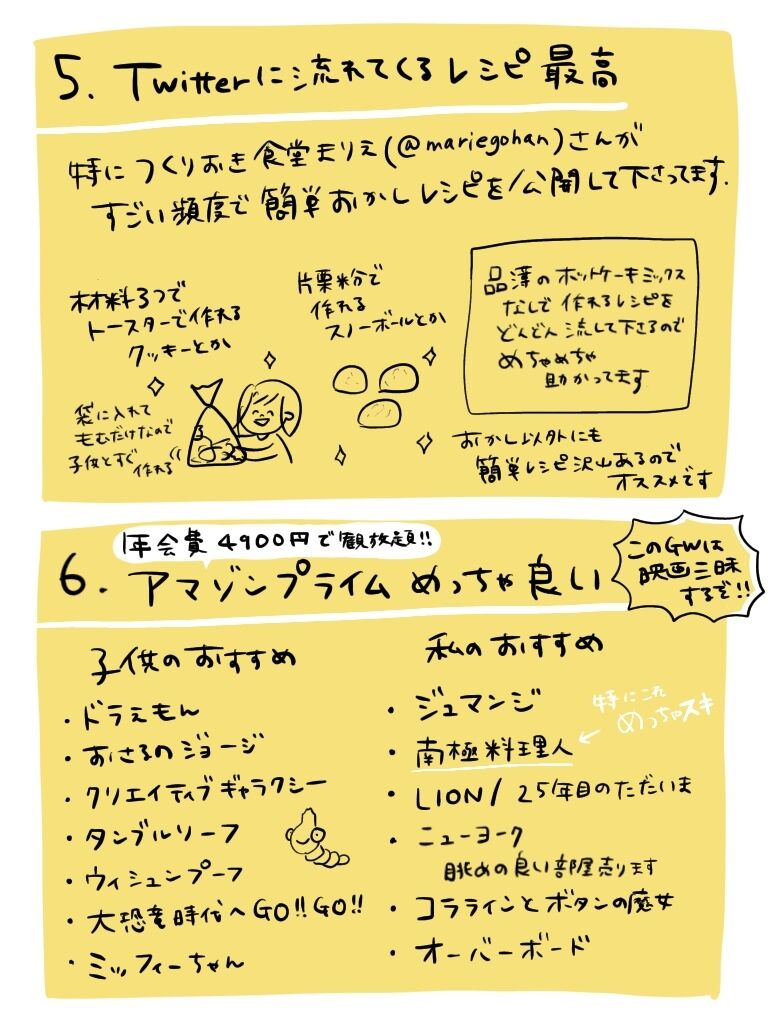 5. Twitterに流れてくるレシピ 最高
特に つくりおき食堂まりえ(@mariegohan)さんが
すごい頻度で簡単おかしレシピを公開して下さってます.
材料3つで
トースターで作れる
クッキーとか
袋に入れて
もむだけなので
子供とすぐ
作れる
片栗粉で
作れる
スノーボールとか
品薄のホットケーキミックス
なしで作れるレシピを
どんどん流して下さるので
めちゃめちゃ
助かってます
おかし以外にも
簡単レシピ沢山あるので
オススメです
年会費4900円で観放題!!
6. アマゾンプライム めっちゃ良い
このGWは
映画三昧
するぞ!!
子供のおすすめ
・ドラえもん
・おさるのジョージ
・クリエイティブギャラクシー
・タンブルリーフ
・ウィシュンプーフ
・大恐竜時代へGO!!GO!!
・ミッフィーちゃん
私のおすすめ
・ジュマンジ
・南極料理人
特にこれ
めっちゃスキ
・LION/25年目のただいま
・ニューヨーク
眺めの良い部屋売ります
・コララインとボタンの魔女
・オーバーボード